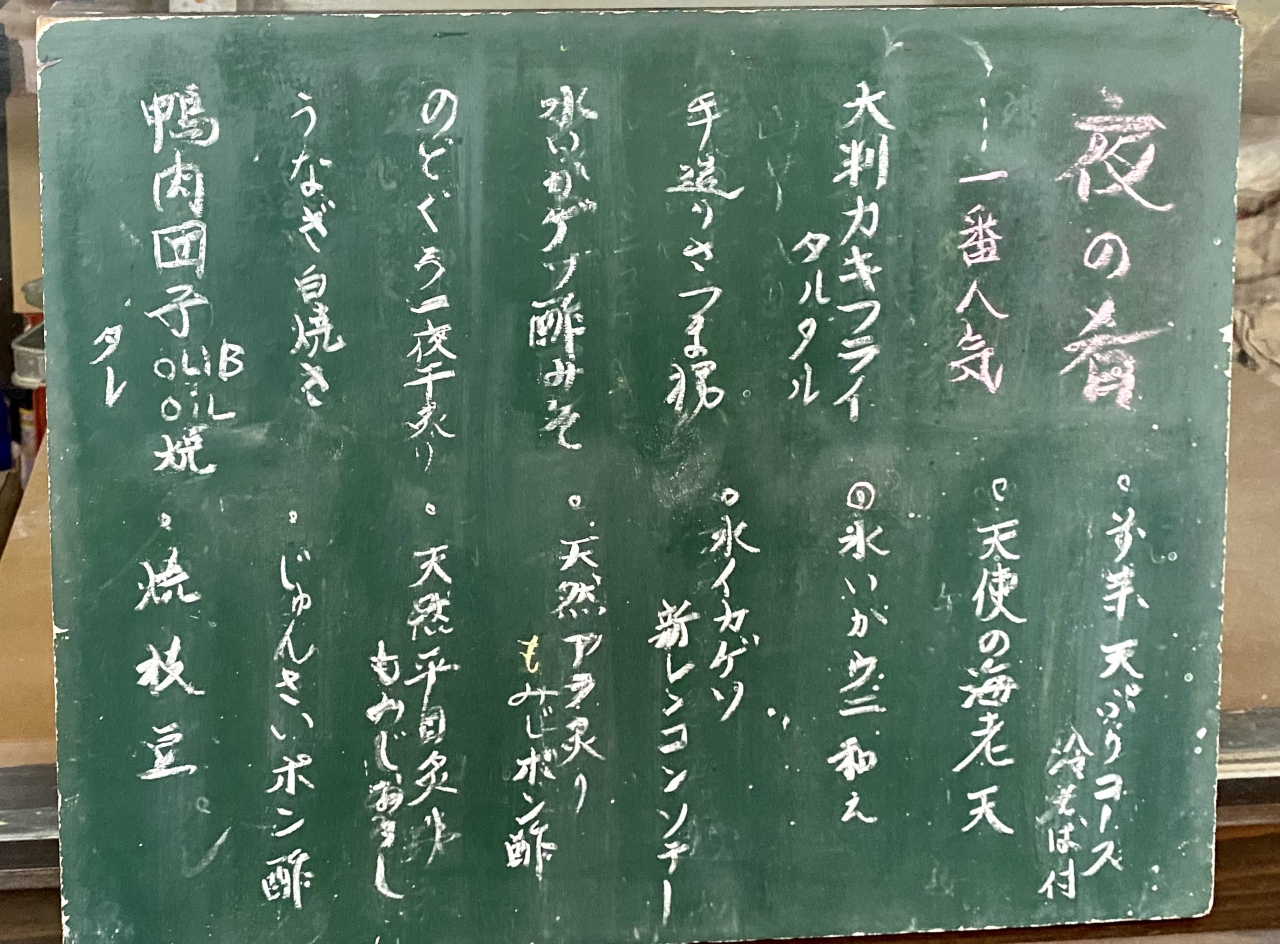 夜の肴
一番人気
大判カキフライ
タルタル
手造りさつま揚
水いかゲソ酢みそ
のどぐろ一夜干炙り
うなぎ白焼き
鴨肉団子OLIB OiL焼
タレ
天ぷらコース
冷そば付
天使の海老天
◎水いかウニ和え
水イカゲソ
新レンコンソテー
天然アラ炙り
もみじポン酢
天然平目炙り
もみじおろし
じゅんさいポン酢
焼枝豆